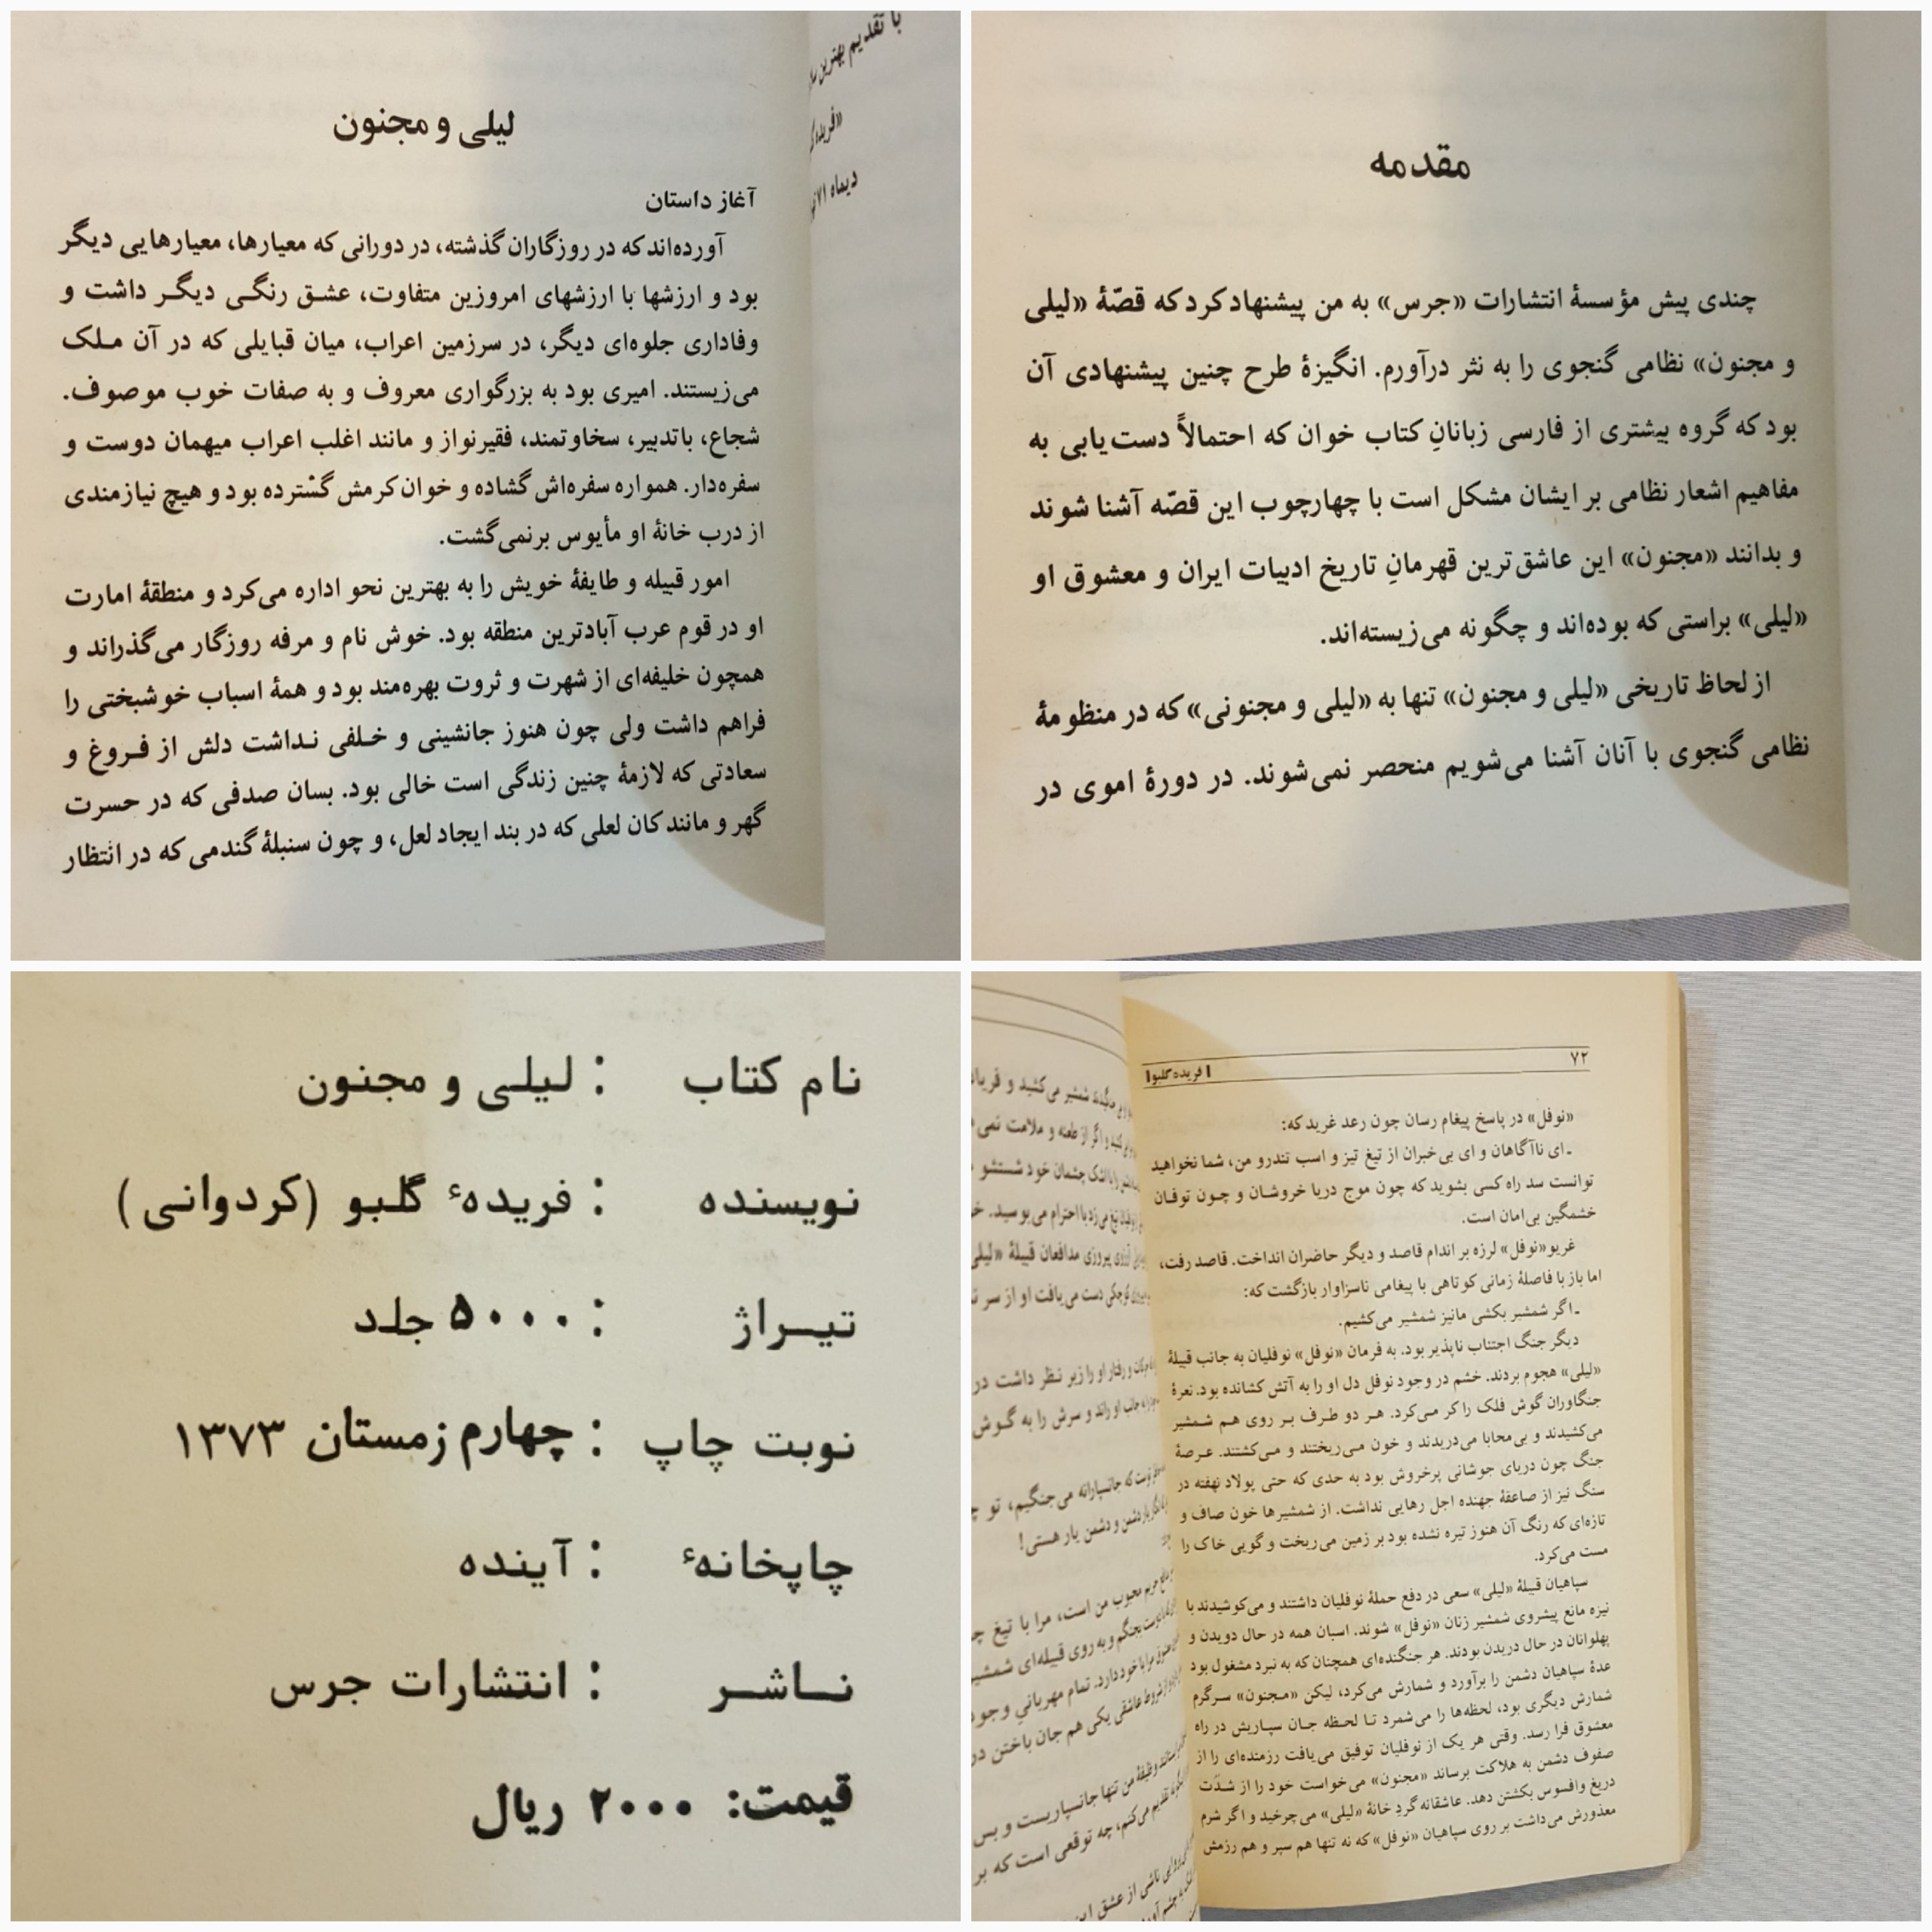 لیلی و مجنون
آغاز داستان
آورده‌اند که در روزگاران گذشته، در دورانی که معیارها، معیارهایی دیگر
بود و ارزشها با ارزشهای امروزین متفاوت، عشق رنگی دیگر داشت و
وفاداری جلوه‌ای دیگر، در سرزمین اعراب، میان قبایلی که در آن ملک
می‌زیستند. امیری بود به بزرگواری معروف و به صفات خوب موصوف.
شجاع، باتدبیر، سخاوتمند، فقیرنواز و مانند اغلب اعراب میهمان دوست و
سفره‌دار. همواره سفره‌اش گشاده و خوان کرمش گسترده بود و هیچ نیازمندی
از درب خانهٔ او مأیوس برنمی‌گشت.
امور قبیله و طایفهٔ خویش را به بهترین نحو اداره می‌کرد و منطقهٔ امارت
او در قوم عرب آبادترین منطقه بود. خوش نام و مرفه روزگار می‌گذراند و
همچون خلیفه‌ای از شهرت و ثروت بهره‌مند بود و همهٔ اسباب خوشبختی را
فراهم داشت ولی چون هنوز جانشینی و خلفی نداشت دلش از فروغ و
سعادتی که لازمهٔ چنین زندگی است خالی بود. بسان صدفی که در حسرت
گهر و مانند کان لعلی که در بند ایجاد لعل، و چون سنبلهٔ گندمی که در انتظار
با تقدیم بهترین
دیماه ۷۱
مقدمه
چندی پیش مؤسسهٔ انتشارات «جرس» به من پیشنهاد کرد که قصّهٔ «لیلی
و مجنون» نظامی گنجوی را به نثر درآورم. انگیزهٔ طرح چنین پیشنهادی آن
بود که گروه بیشتری از فارسی زبانانِ کتاب خوان که احتمالاً دست‌یابی به
مفاهیم اشعار نظامی برایشان مشکل است با چهارچوب این قصّه آشنا شوند
و بدانند «مجنون» این عاشق‌ترین قهرمانِ تاریخ ادبیات ایران و معشوق او
«لیلی» براستی که بوده‌اند و چگونه می‌زیسته‌اند.
از لحاظ تاریخی «لیلی و مجنون» تنها به «لیلی و مجنونی» که در منظومهٔ
نظامی گنجوی با آنان آشنا می‌شویم منحصر نمی‌شوند. در دورهٔ اموی در
نام کتاب : لیلی و مجنون
نویسنده : فریدهٔ گلبو (کردوانی)
تیراژ : ۵۰۰۰ جلد
نوبت چاپ : چهارم زمستان ۱۳۷۳
چاپخانهٔ : آینده
ناشر : انتشارات جرس
قیمت: ۲۰۰۰ ریال
۷۲
فریده گلبو
«نوفل» در پاسخ پیغام رسان چون رعد غرید که:
ـ ای ناآگاهان و ای بی‌خبران از تیغ تیز و اسب تندرو من، شما نخواهید
توانست سد راه کسی بشوید که چون موج دریا خروشان و چون توفان
خشمگین بی‌امان است.
غریو «نوفل» لرزه بر اندام قاصد و دیگر حاضران انداخت. قاصد رفت،
اما باز با فاصلهٔ زمانی کوتاهی با پیغامی ناسزاوار بازگشت که:
ـ اگر شمشیر بکشی مانیز شمشیر می‌کشیم.
دیگر جنگ اجتناب ناپذیر بود. به فرمان «نوفل» نوفلیان به جانب قبیلهٔ
«لیلی» هجوم بردند. خشم در وجود نوفل دل او را به آتش کشانده بود. نعرهٔ
جنگاوران گوش فلک را کر می‌کرد. هر دو طرف بر روی هم شمشیر
می‌کشیدند و بی‌محابا می‌دریدند و خون می‌ریختند و می‌کشتند. عرصهٔ
جنگ چون دریای جوشانی پرخروش بود به حدی که حتی پولاد نهفته در
سنگ نیز از صاعقهٔ جهنده اجل رهایی نداشت. از شمشیرها خون صاف و
تازه‌ای که رنگ آن هنوز تیره نشده بود بر زمین می‌ریخت و گویی خاک را
مست می‌کرد.
سپاهیان قبیلهٔ «لیلی» سعی در دفع حملهٔ نوفلیان داشتند و می‌کوشیدند با
نیزه مانع پیشروی شمشیر زنان «نوفل» شوند. اسبان همه در حال دویدن و
پهلوانان در حال دریدن بودند. هر جنگنده‌ای همچنان که به نبرد مشغول بود
عدهٔ سپاهیان دشمن را برآورد و شمارش می‌کرد، لیکن «مجنون» سرگرم
شمارش دیگری بود، لحظه‌ها را می‌شمرد تا لحظه جان سپاریش در راه
معشوق فرا رسد. وقتی هر یک از نوفلیان توفیق می‌یافت رزمنده‌ای را از
صفوف دشمن به هلاکت برساند «مجنون» می‌خواست خود را از شدّت
دریغ وافسوس بکشتن دهد. عاشقانه گردِ خانهٔ «لیلی» می‌چرخید و اگر شرم
معذورش می‌داشت بر روی سپاهیان «نوفل» که نه تنها هم سپر و هم رزمش